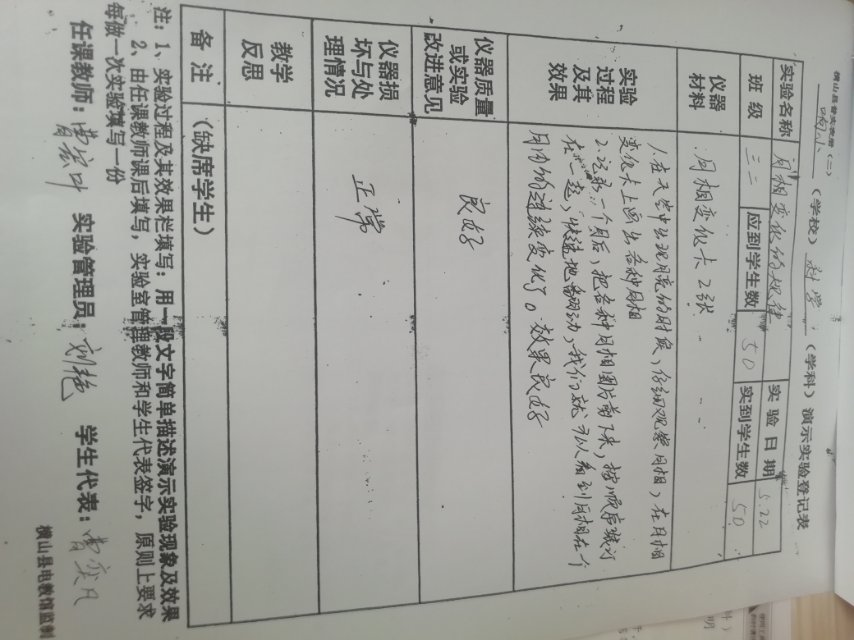 横山县普实表册（二）
响小（学校）科学（学科）演示实验登记表
实验名称 月相变化的规律 实验日期 5.22
班级 三二 应到学生数 50 实到学生数 50
仪器材料 月相变化卡2张
实验过程及其效果
1.在天空中出现月亮的时候，仔细观察月相，在月相
变化卡上画出各种月相
2.记录一个月后，把各种月相图片剪下来，按顺序装订
在一起，快速地翻动，我们就可以看到月相在一个
月内的连续变化了。效果良好
仪器质量或实验改进意见 良好
仪器损坏与处理情况 正常
教学反思
备注 （缺席学生）
注：1、实验过程及其效果栏填写：用一段文字简单描述演示实验现象及效果
2、由任课教师课后填写，实验室管理教师和学生代表签字，原则上要求
每做一次实验填写一份
任课教师：曹 叶 实验管理员：刘艳 学生代表：曹奕凡
横山县电教馆监制